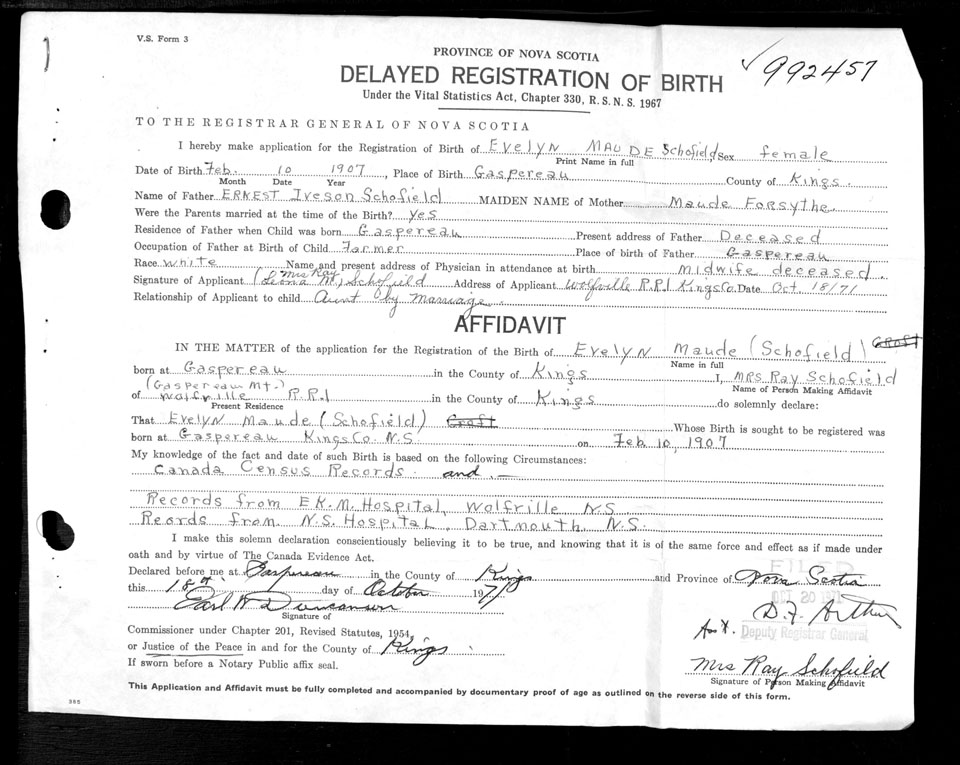 V.S. Form 3
PROVINCE OF NOVA SCOTIA
✓992457
DELAYED REGISTRATION OF BIRTH
Under the Vital Statistics Act, Chapter 330, R.S.N.S. 1967
TO THE REGISTRAR GENERAL OF NOVA SCOTIA
I hereby make application for the Registration of Birth of Evelyn MAUDE Schofield, Sex female
Print Name in full
Date of Birth Feb. 10 1907, Place of Birth Gaspereau County of Kings.
Month Date Year
Name of Father ERNEST Iveson Schofield MAIDEN NAME of Mother Maude Forsythe
Were the Parents married at the time of the Birth? yes
Residence of Father when Child was born Gaspereau Present address of Father Deceased
Occupation of Father at Birth of Child Farmer Place of birth of Father Gaspereau
Race white Name and present address of Physician in attendance at birth Midwife deceased.
Mrs Ray
Signature of Applicant (Leona M.) Schofield Address of Applicant Wolfville R.R.1 Kings Co. Date Oct 18/71
Relationship of Applicant to child Aunt (by marriage
AFFIDAVIT
IN THE MATTER of the application for the Registration of the Birth of Evelyn Maude (Schofield) Croft
Name in full
born at Gaspereau in the County of Kings I, MRS Ray Schofield
Name of Person Making Affidavit
(Gaspereau Mt.)
of Wolfville R.R.1 in the County of Kings do solemnly declare:
Present Residence
That Evelyn Maude (Schofield) Croft Whose Birth is sought to be registered was
born at Gaspereau Kings Co. N.S. on Feb 10, 1907
My knowledge of the fact and date of such Birth is based on the following Circumstances:
Canada Census Records and,—
Records from E.K.M. Hospital, Wolfville N.S
Reords from N.S. Hospital, Dartmouth N.S.
I make this solemn declaration conscientiously believing it to be true, and knowing that it is of the same force and effect as if made under
oath and by virtue of The Canada Evidence Act.
Declared before me at Gaspereau in the County of Kings and Province of Nova Scotia
FILED
this 18th day of October 1971
OCT 20 1971
Earl W Duncanson
D.F. Arthur
Signature of
Asst. Deputy Registrar General
Commissioner under Chapter 201, Revised Statutes, 1954,
or Justice of the Peace in and for the County of Kings
If sworn before a Notary Public affix seal.
Mrs Ray Schofield
Signature of Person Making Affidavit
This Application and Affidavit must be fully completed and accompanied by documentary proof of age as outlined on the reverse side of this form.